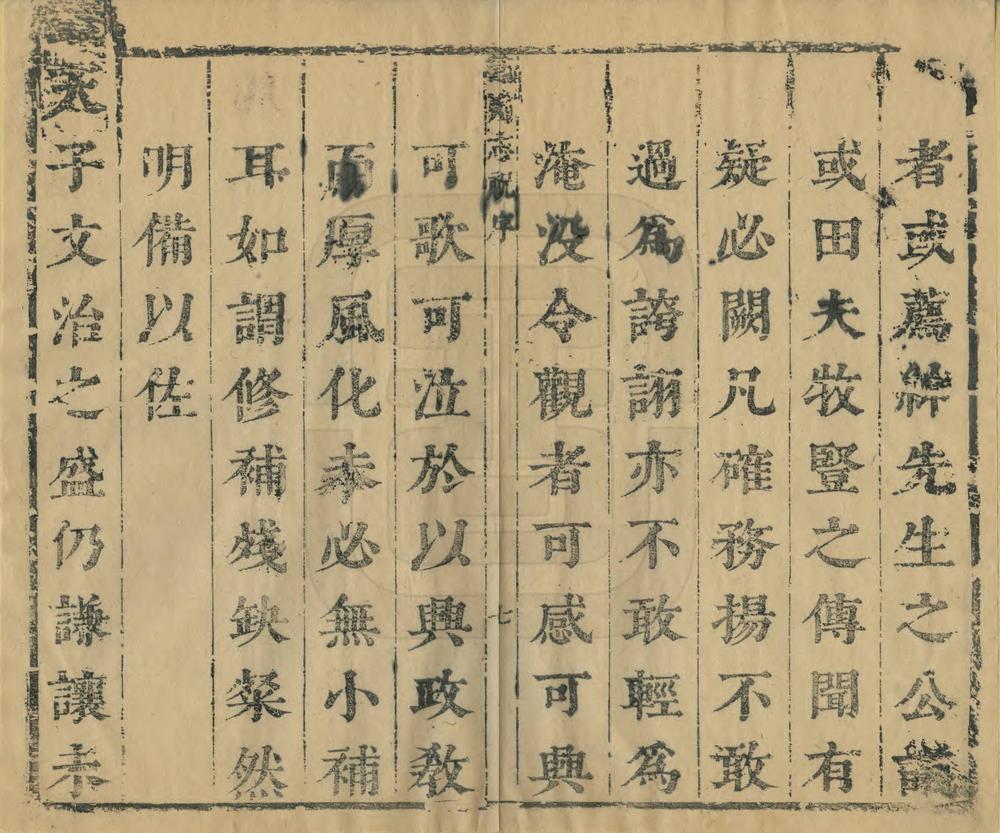 者或薦紳先生之公議
或田夫牧豎之傳聞有
疑必闕凡確務揚不敢
過為誇詡亦不敢輕為
淹没令觀者可感可興
志序
七
可歌可泣於以興政敎
而厚風化未必無小補
耳如謂修補殘缺粲然
明備以佐
天子文治之盛仍謙讓未